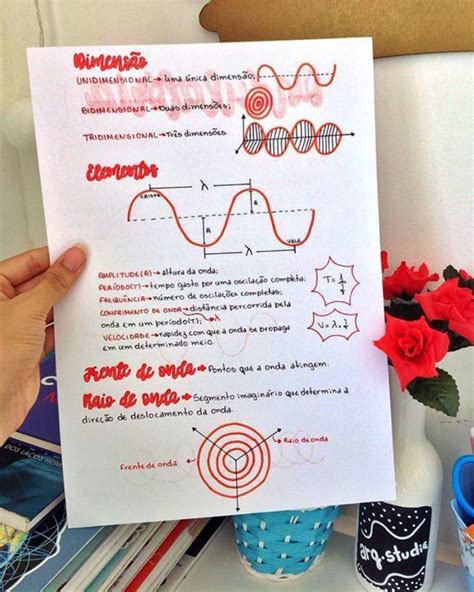 Dimensão
UNIDIMENSIONAL → Uma única dimensão;
BIDIMENSIONAL → Duas dimensões;
TRIDIMENSIONAL → Três dimensões.
Elementos
λ
CRISTA
A
A
λ
VALE
AMPLITUDE(A) → altura da onda;
PERÍODO(T) → tempo gasto por uma oscilação completa;
FREQUÊNCIA → número de oscilações completas;
COMPRIMENTO DE ONDA → distância percorrida pela
onda em um período(T); → λ
VELOCIDADE → rapidez com que a onda se propaga
em um determinado meio.
T = 1/f
V = λ . f
Frente de onda → Pontos que a onda atingem.
Raio de onda → Segmento imaginário que determina a
direção de deslocamento da onda.
Raio de onda
Frente de onda
arq.studie